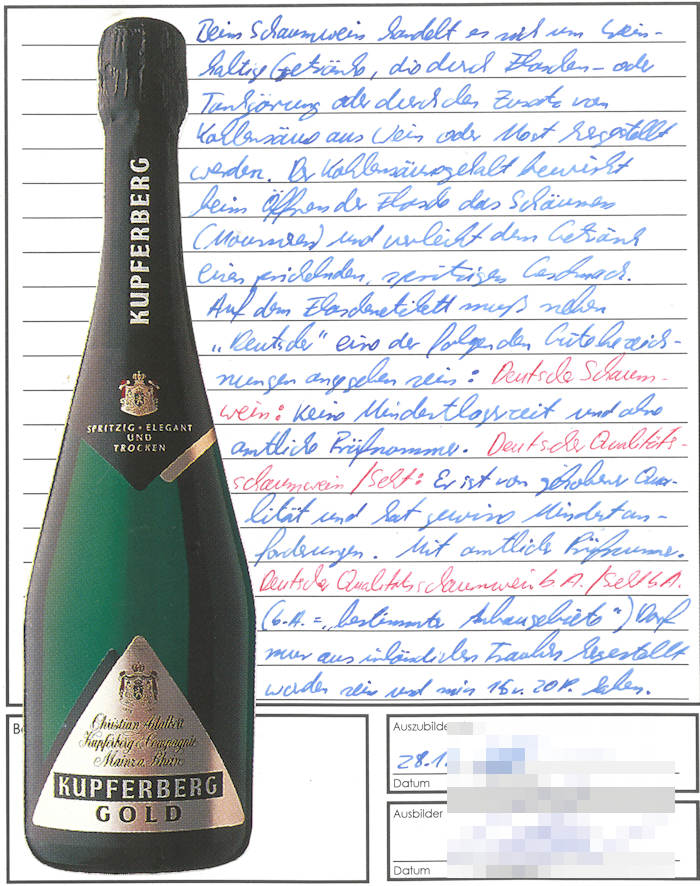 Beim Schaumwein handelt es sich um wein-
haltige Getränke, die durch Flaschen- oder
Tankgärung oder durch den Zusatz von
Kohlensäure aus Wein oder Most hergestellt
werden. Der Kohlensäuregehalt bewirkt
beim Öffnen der Flasche das Schäumen
(Moussieren) und verleiht dem Getränk
einen prickelnden, spritzigen Geschmack.
Auf dem Flaschenetikett muß neben
„Deutscher" eine der folgenden Gütebezeich-
nungen angegeben sein: Deutscher Schaum-
wein: Keine Mindestlagerzeit und ohne
amtliche Prüfnummer. Deutscher Qualitäts-
schaumwein / Sekt: Er ist von gehobener Qua-
lität und hat gewisse Mindestan-
forderungen. Mit amtlicher Prüfnummer.
Deutscher Qualitätsschaumwein b.A. / Sekt b.A.
(b.A. = „bestimmte Anbaugebiete") Darf
nur aus inländischen Trauben hergestellt
worden sein und min
KUPFERBERG
SPRITZIG • ELEGANT
UND
TROCKEN
Christian Adalbert
Kupferberg & Compagnie
Mainz a. Rhein
KUPFERBERG
GOLD
Be
Auszubilde
28.1.
Datum
Ausbilder
Datum